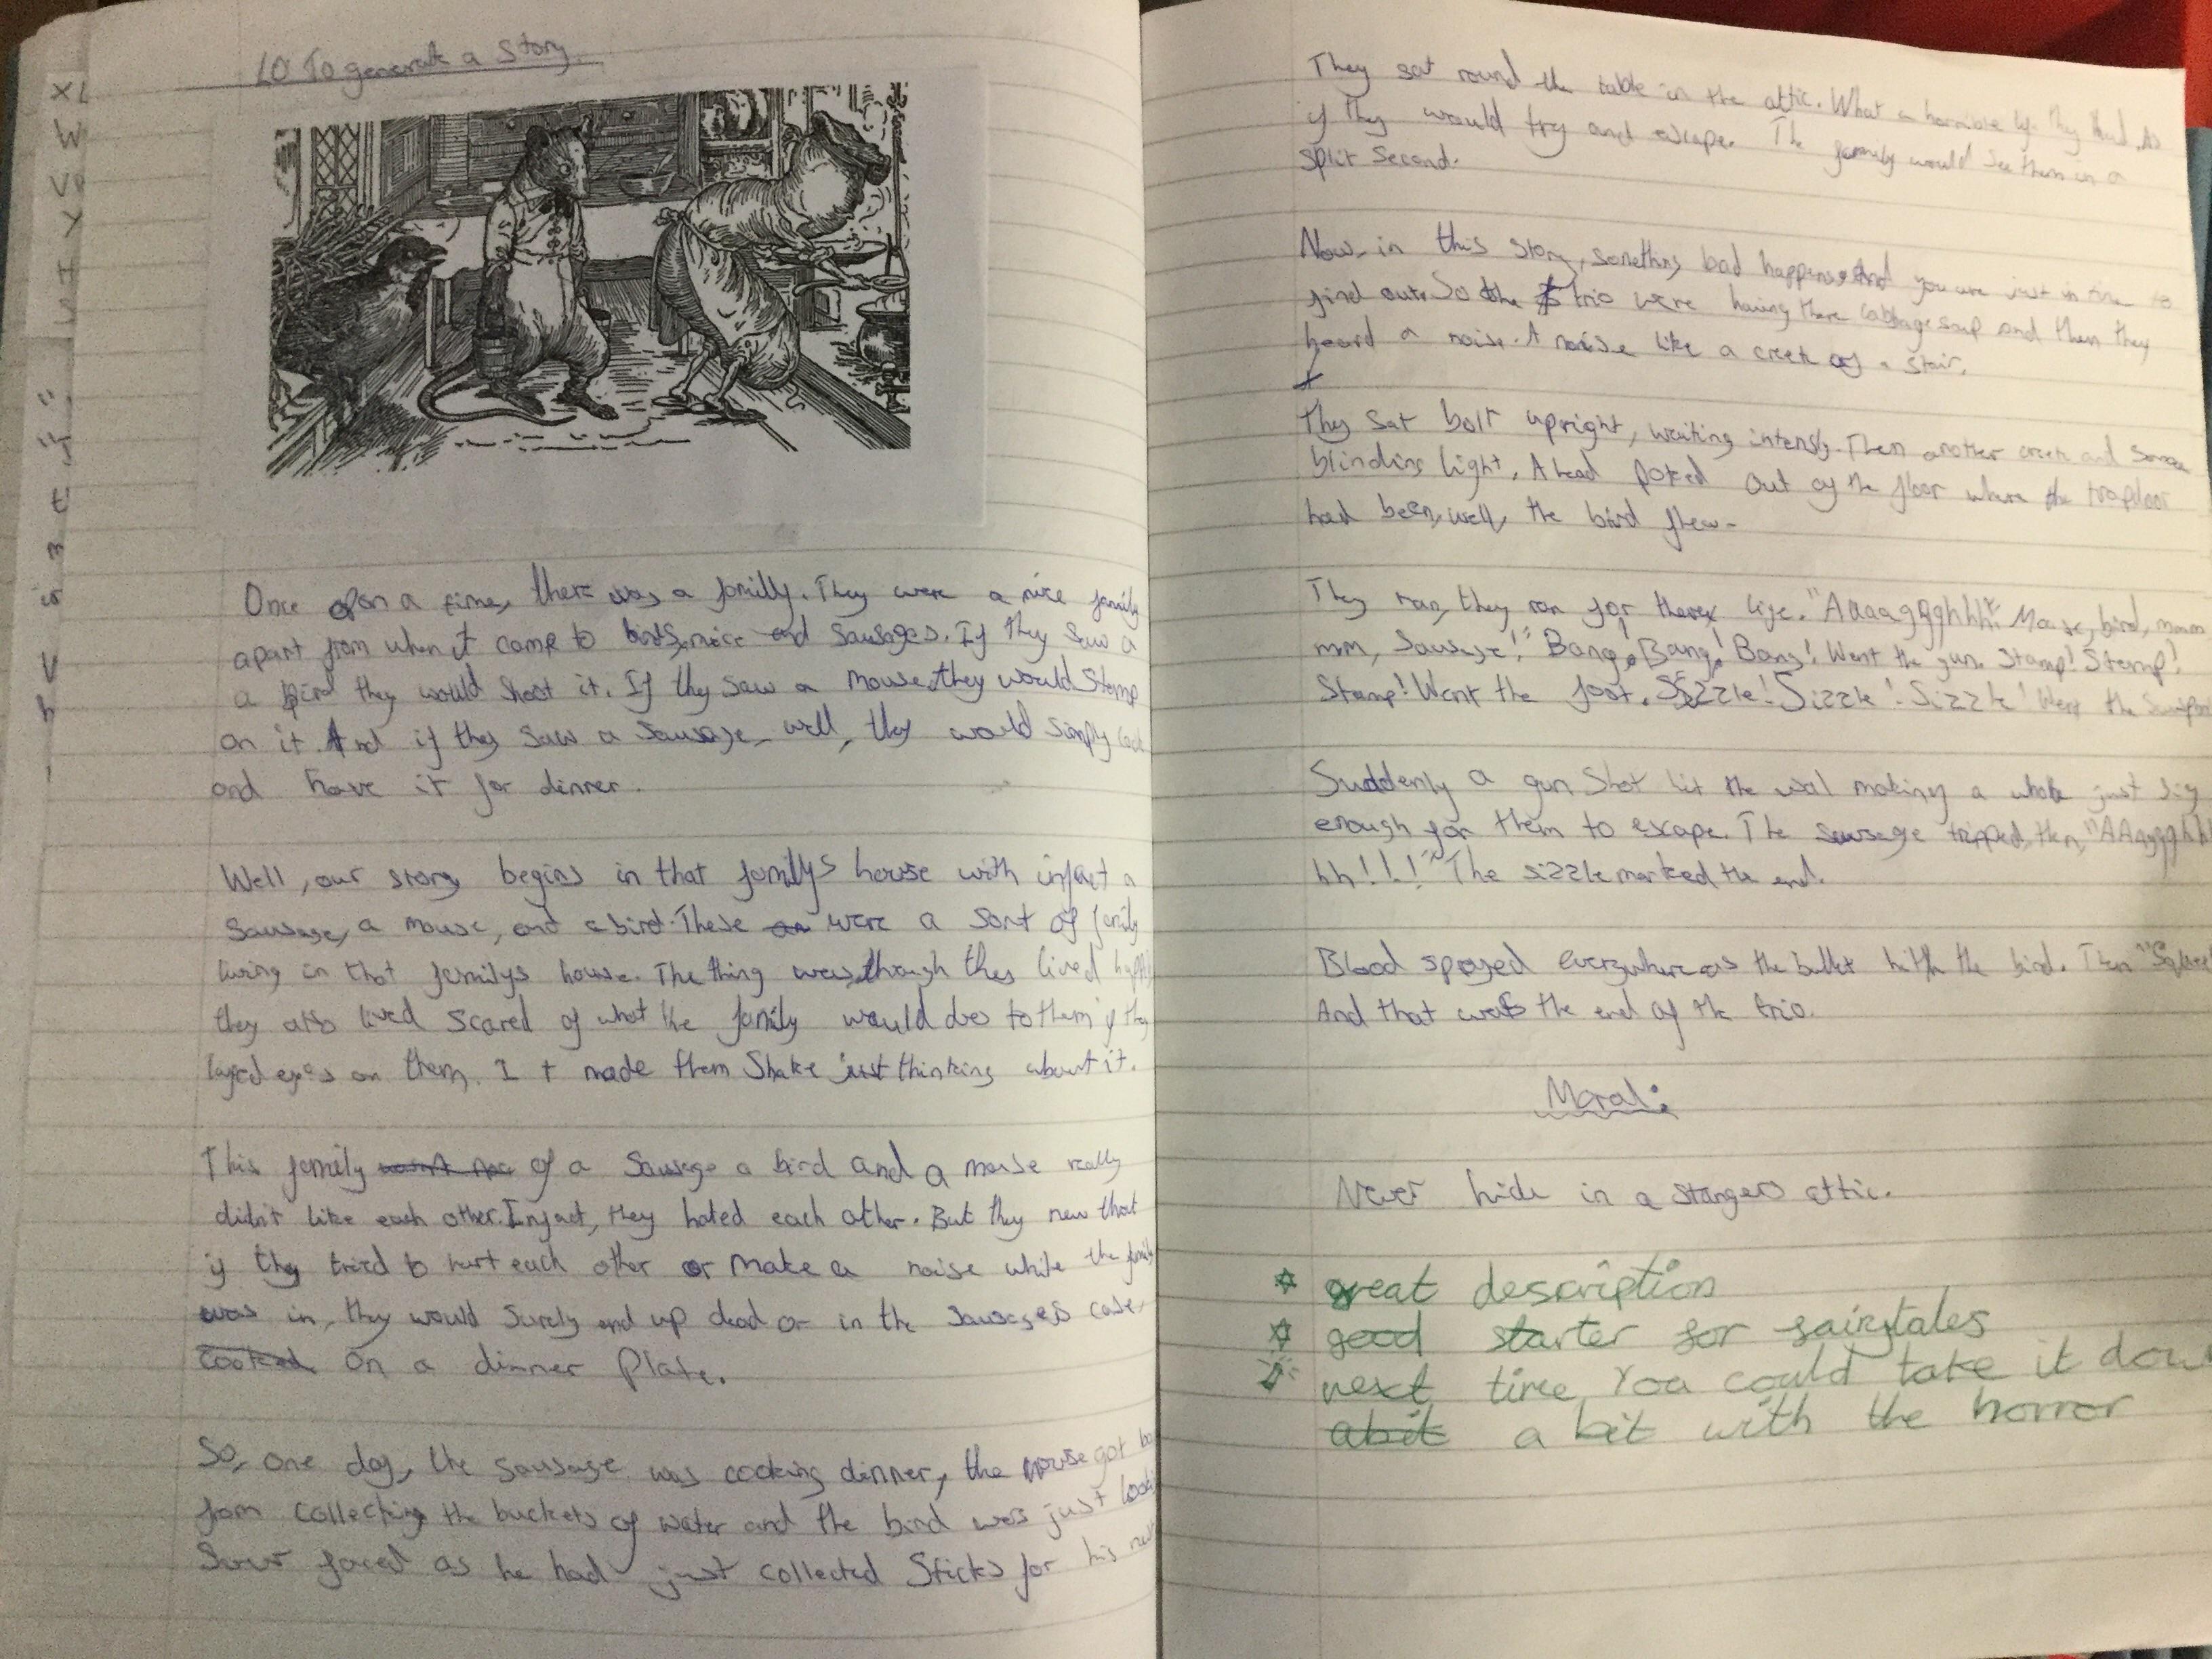 LO To generate a Story.
Once opon a time, there was a familly. They were a nice family
apart from when it came to birds, mice and sausages. If they saw a
a bird they would shoot it. If they saw a mouse, they would Stomp
on it. And if they saw a Sausage, well, they would simply cook
and have it for dinner.
Well, our story begins in that family's house with infact a
Sausage, a mouse, and a bird. These were a sort of family
living in that familys house. The thing was, though they lived
they also lived scared of what the family would do to them if they
layed eyes on them. It made them Shake just thinking about it.
This family of a Sausage a bird and a mouse really
didn't like each other. Infact, they hated each other. But they new that
if they tried to hurt each other or make a noise while the family
was in, they would surely end up dead or in the sausages case,
cooked on a dinner plate.
So, one day, the sausage was cooking dinner, the mouse got
from collecting the buckets of water and the bird was just
faced as he had just collected Sticks for his
They sat round the table in the attic. What a horrible life they had. As
if they would try and escape. The family would see them in a
split second.
Now, in this story, something bad happens. And you are just in time to
find out. So the trio were having there cabbage soup and then they
heard a noise. A noise like a creek of a stair.
They sat bolt upright, waiting intensly. Then another creek and
blinding light. A head poked out of the floor where the trapdoor
had been, well, the bird flew-
They ran, they ran for there life. "Aaaagggghhh! Mouse, bird, mmm
mm, Sausage!" Bang! Bang! Bang! Went the gun. Stamp! Stamp!
Stamp! Went the foot. Sizzle! Sizzle! Sizzle! Went the
Suddenly a gun Shot hit the wal making a whole just big
enough for them to escape. The sausage tripped, then, "AAaggghh
hh!!!" The sizzle marked the end.
Blood sprayed everywhere as the bullet hit the bird. Then
And that was the end of the trio.
Moral:
Never hide in a stangers attic.
great description
good starter for fairytales
next time you could take it down
abit a bit with the horror